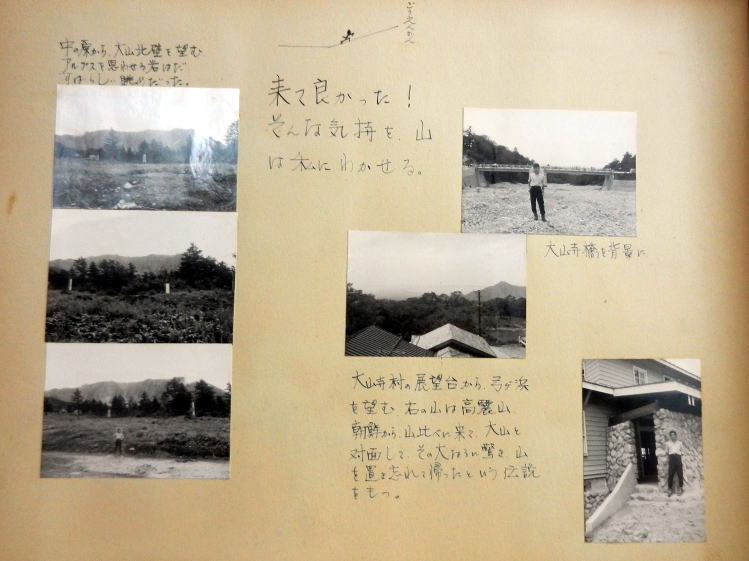 中の原から、大山北壁を望む
アルプスを思わせる岩はだ
すばらしい眺めだった。
来て良かった！
そんな気持を、山
は私にわかせる。
大山寺橋を背景に
大山寺村の展望台から、弓ヶ浜
を望む 右の山は高麗山
朝鮮から、山比べに来て、大山と
対面して、その大きさに驚き、山
を置き忘れて帰ったという伝説
をもつ。